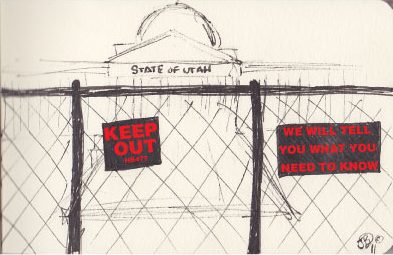 STATE OF UTAH
KEEP
OUT
HB477
WE WILL TELL
YOU WHAT YOU
NEED TO KNOW